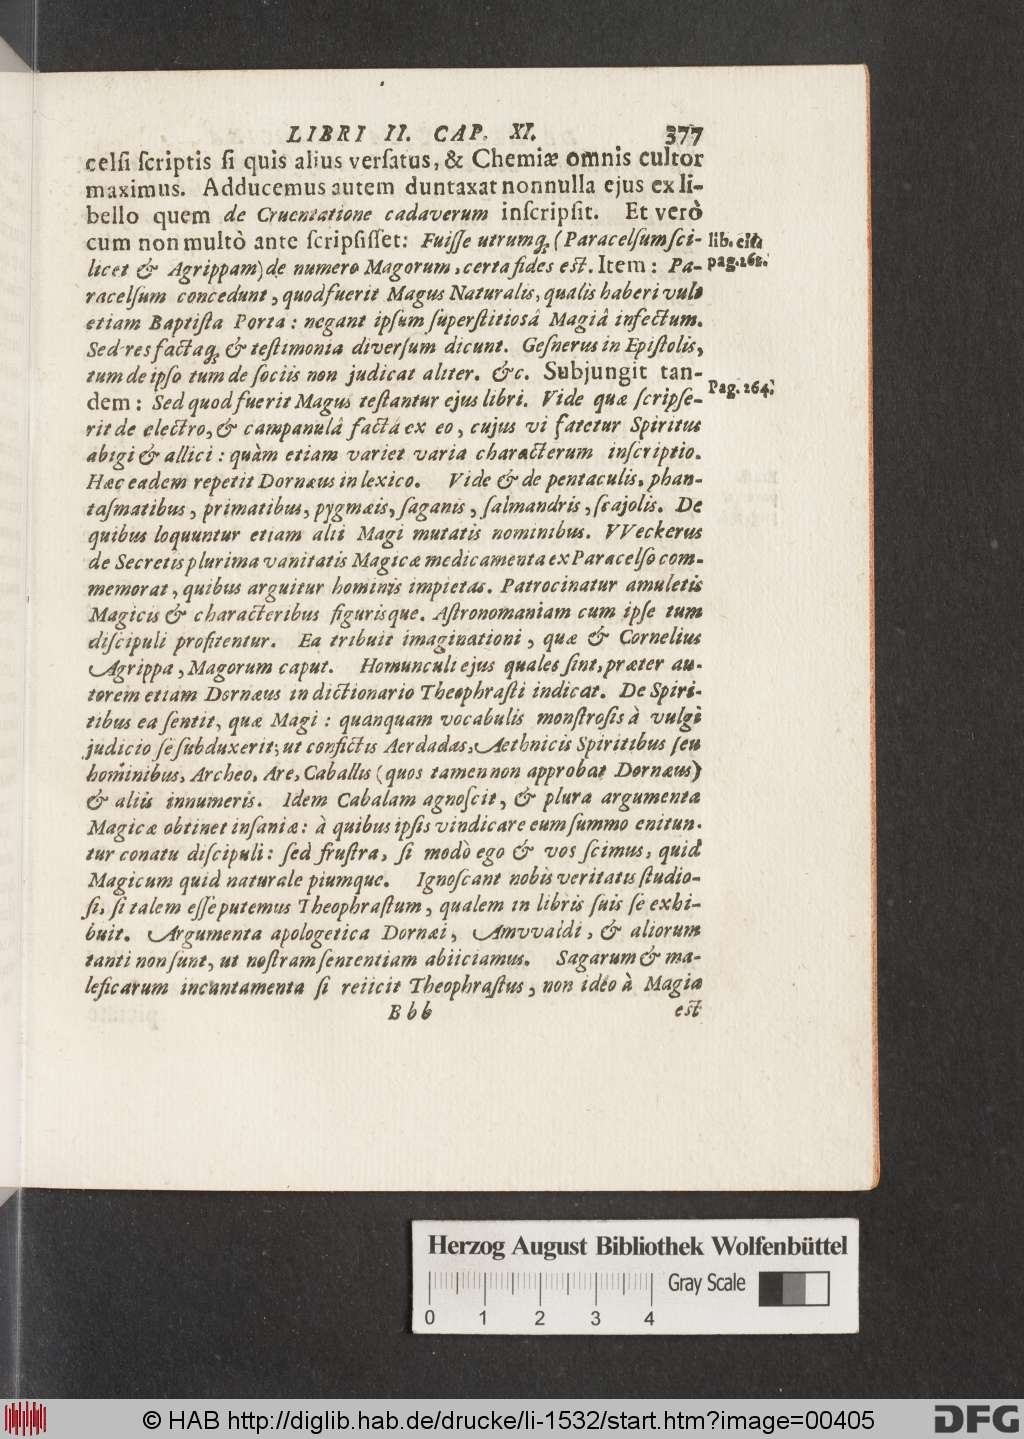 LIBRI II. CAP. XI. 377
celſi ſcriptis ſi quis alius verſatus, & Chemiæ omnis cultor
maximus. Adducemus autem duntaxat nonnulla ejus ex li-
bello quem de Cruentatione cadaverum inſcripſit. Et verò
cum non multò ante ſcripſiſſet: Fuiſſe utrumq; (Paracelſum ſci-
lib. cit.
licet & Agrippam) de numero Magorum, certa fides est. Item: Pa-
pag. 262.
racelſum concedunt, quod fuerit Magus Naturalis, qualis haberi vult
etiam Baptiſta Porta: negant ipſum ſuperſtitiosâ Magiâ infectum.
Sed res factaq; & teſtimonia diverſum dicunt. Geſnerus in Epiſtolis,
tum de ipſo tum de ſociis non judicat aliter. &c. Subjungit tan-
Pag. 264.
dem: Sed quod fuerit Magus teſtantur ejus libri. Vide quæ ſcripſe-
rit de electro, & campanulâ factâ ex eo, cujus vi fatetur Spiritus
abigi & allici: quàm etiam variet varia characterum inſcriptio.
Hæc eadem repetit Dornæus in lexico. Vide & de pentaculis, phan-
taſmatibus, primatibus, pygmæis, ſaganis, ſalmandris, ſcajolis. De
quibus loquuntur etiam alii Magi mutatis nominibus. VVeckerus
de Secretis plurima vanitatis Magicæ medicamenta ex Paracelſo com-
memorat, quibus arguitur hominis impietas. Patrocinatur amuletis
Magicis & characteribus figurisque. Aſtronomaniam cum ipſe tum
diſcipuli profitentur. Ea tribuit imaginationi, quæ & Cornelius
Agrippa, Magorum caput. Homunculi ejus quales ſint, præter au-
torem etiam Dornæus in dictionario Theophraſti indicat. De Spiri-
tibus ea ſentit, quæ Magi: quanquam vocabulis monſtroſis à vulgi
judicio ſe ſubduxerit; ut confictis Aerdadas, Aethnicis Spiritibus ſeu
hominibus, Archeo, Are, Caballis (quos tamen non approbat Dornæus)
& aliis innumeris. Idem Cabalam agnoſcit, & plura argumenta
Magicæ obtinet inſaniæ: à quibus ipſis vindicare eum ſummo enitun-
tur conatu diſcipuli: ſed fruſtra, ſi modò ego & vos ſcimus, quid
Magicum quid naturale piumque. Ignoſcant nobis veritatis ſtudio-
ſi, ſi talem eſſe putemus Theophraſtum, qualem in libris ſuis ſe exhi-
buit. Argumenta apologetica Dornæi, Amvvaldi, & aliorum
tanti non ſunt, ut noſtram ſententiam abiiciamus. Sagarum & ma-
leficarum incantamenta ſi reiicit Theophraſtus, non ideo à Magia
Bbb est
Herzog August Bibliothek Wolfenbüttel
Gray Scale
0 1 2 3 4
© HAB http://diglib.hab.de/drucke/li-1532/start.htm?image=00405
DFG